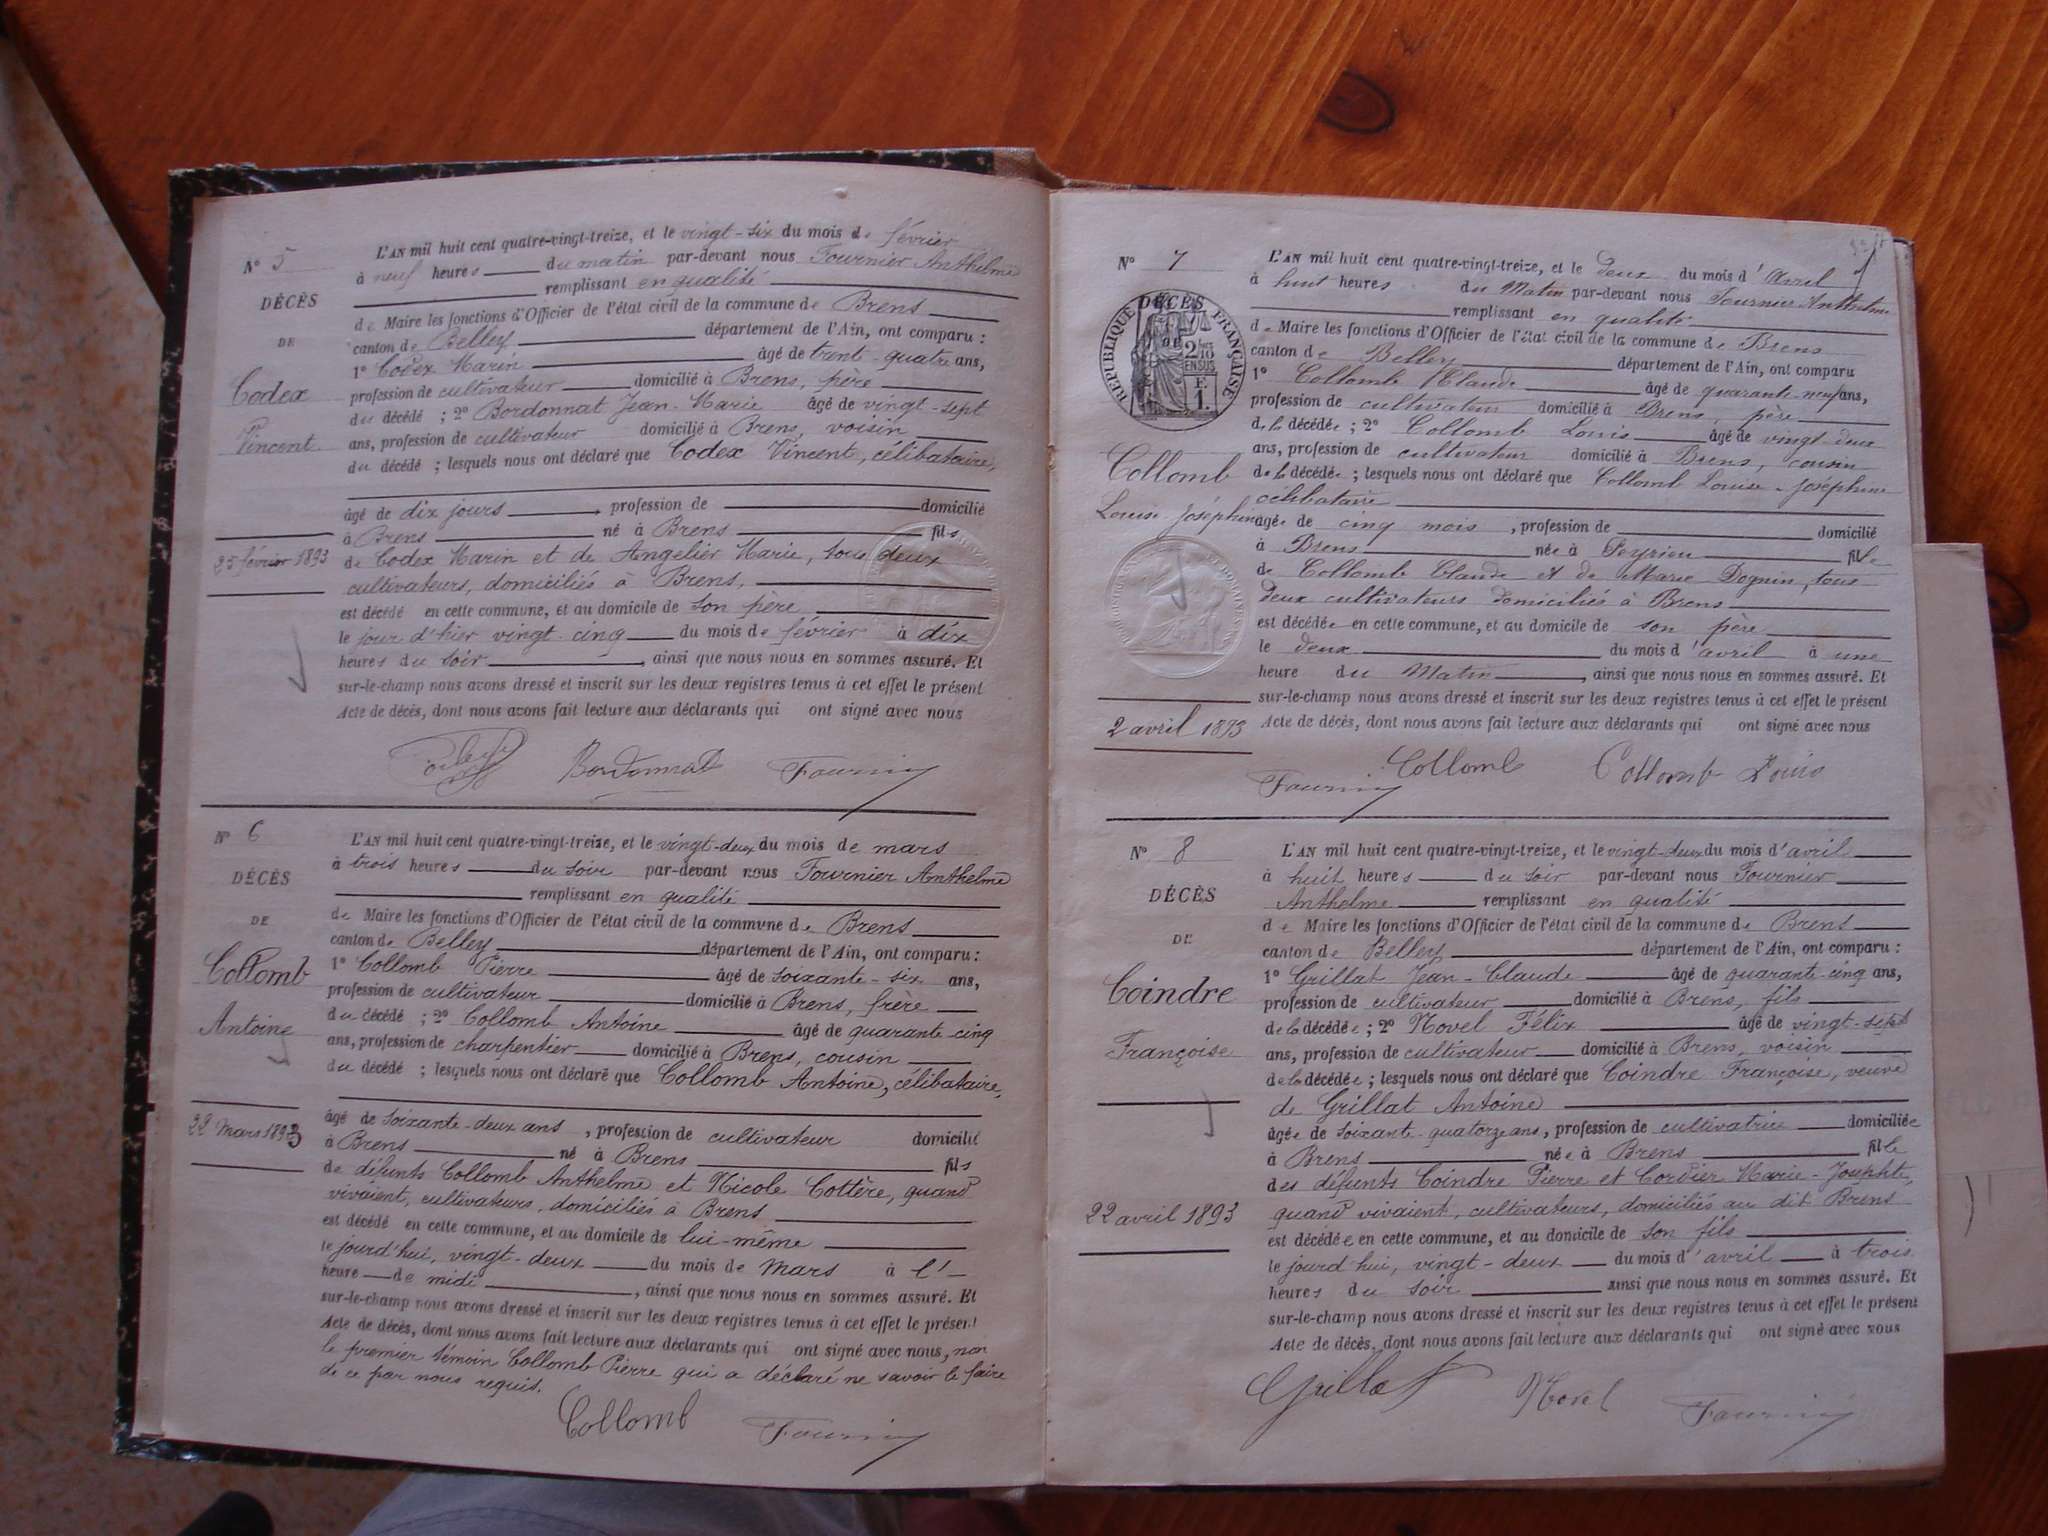 N° 5
DÉCÈS
DE
Codex
Vincent
25 février 1893
L'AN mil huit cent quatre-vingt-treize, et le vingt-six du mois de février
à neuf heures du matin par-devant nous Fournier Anthelme
remplissant en qualité
de Maire les fonctions d'Officier de l'état civil de la commune de Brens
canton de Belley département de l'Ain, ont comparu :
1° Codex Marin âgé de trent-quatre ans,
profession de cultivateur domicilié à Brens, père
du décédé ; 2° Bordonnat Jean-Marie âgé de vingt-sept
ans, profession de cultivateur domicilié à Brens, voisin
du décédé ; lesquels nous ont déclaré que Codex Vincent, célibataire,
âgé de dix jours, profession de domicilié
à Brens né à Brens fils
de Codex Marin et de Angelier Marie, tous deux
cultivateurs, domiciliés à Brens,
est décédé en cette commune, et au domicile de son père
le jour d'hier vingt-cinq du mois de février à dix
heures du soir, ainsi que nous nous en sommes assuré. Et
sur-le-champ nous avons dressé et inscrit sur les deux registres tenus à cet effet le présent
Acte de décès, dont nous avons fait lecture aux déclarants qui ont signé avec nous
Bordonnat Fournier
N° 6
DÉCÈS
DE
Collomb
Antoine
22 Mars 1893
L'AN mil huit cent quatre-vingt-treize, et le vingt-deux du mois de mars
à trois heures du soir par-devant nous Fournier Anthelme
remplissant en qualité
de Maire les fonctions d'Officier de l'état civil de la commune de Brens
canton de Belley département de l'Ain, ont comparu :
1° Collomb Pierre âgé de soixante-six ans,
profession de cultivateur domicilié à Brens, frère
du décédé ; 2° Collomb Antoine âgé de quarante-cinq
ans, profession de charpentier domicilié à Brens, cousin
du décédé ; lesquels nous ont déclaré que Collomb Antoine, célibataire,
âgé de soixante-deux ans, profession de cultivateur domicilié
à Brens né à Brens fils
de défunts Collomb Anthelme et Nicole Cottère, quand
vivaient, cultivateurs, domiciliés à Brens
est décédé en cette commune, et au domicile de lui-même
le jourd'hui, vingt-deux du mois de Mars à l'
heure de midi, ainsi que nous nous en sommes assuré. Et
sur-le-champ nous avons dressé et inscrit sur les deux registres tenus à cet effet le présent
Acte de décès, dont nous avons fait lecture aux déclarants qui ont signé avec nous, non
le premier témoin Collomb Pierre qui a déclaré ne savoir le faire
de ce par nous requis.
Collomb Fournier
N° 7
DÉCÈS
RÉPUBLIQUE FRANÇAISE
2/10 EN SUS
1 F.
Collomb
Louise-Joséphine
2 avril 1893
L'AN mil huit cent quatre-vingt-treize, et le deux du mois d'avril
à huit heures du Matin par-devant nous Fournier Anthelme
remplissant en qualité
de Maire les fonctions d'Officier de l'état civil de la commune de Brens
canton de Belley département de l'Ain, ont comparu
1° Collomb Claude âgé de quarante-neuf ans,
profession de cultivateur domicilié à Brens, père
de la décédée ; 2° Collomb Louis âgé de vingt-deux
ans, profession de cultivateur domicilié à Brens, cousin
de la décédée ; lesquels nous ont déclaré que Collomb Louise-Joséphine
célibataire
âgée de cinq mois, profession de domicilié
à Brens née à Peyrieu fille
de Collomb Claude et de Marie Dognin, tous
deux cultivateurs domiciliés à Brens
est décédée en cette commune, et au domicile de son père
le deux du mois d'avril à une
heure du Matin, ainsi que nous nous en sommes assuré. Et
sur-le-champ nous avons dressé et inscrit sur les deux registres tenus à cet effet le présent
Acte de décès, dont nous avons fait lecture aux déclarants qui ont signé avec nous
Fournier Collomb Collomb Louis
N° 8
DÉCÈS
DE
Coindre
Françoise
22 avril 1893
L'AN mil huit cent quatre-vingt-treize, et le vingt-deux du mois d'avril
à huit heures du soir par-devant nous Fournier
Anthelme remplissant en qualité
de Maire les fonctions d'Officier de l'état civil de la commune de Brens
canton de Belley département de l'Ain, ont comparu :
1° Grillat Jean-Claude âgé de quarante-cinq ans,
profession de cultivateur domicilié à Brens, fils
de la décédée ; 2° Novel Félix âgé de vingt-sept
ans, profession de cultivateur domicilié à Brens, voisin
de la décédée ; lesquels nous ont déclaré que Coindre Françoise, veuve
de Grillat Antoine
âgée de soixante-quatorze ans, profession de cultivatrice domiciliée
à Brens née à Brens fille
des défunts Coindre Pierre et Cordier Marie-Josephte,
quand vivaient, cultivateurs, domiciliés au dit Brens
est décédée en cette commune, et au domicile de son fils
le jourd'hui, vingt-deux du mois d'avril à trois
heures du soir ainsi que nous nous en sommes assuré. Et
sur-le-champ nous avons dressé et inscrit sur les deux registres tenus à cet effet le présent
Acte de décès, dont nous avons fait lecture aux déclarants qui ont signé avec nous
Grillat Novel Fournier